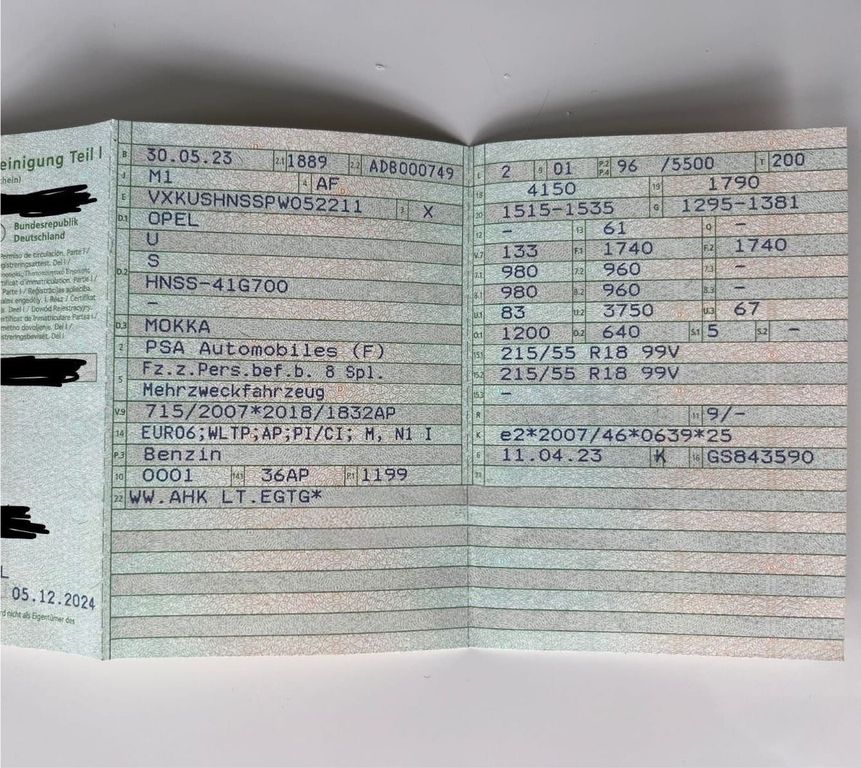 einigung Teil I
chein)
Bundesrepublik
Deutschland
Permiso de circulación. Parte I /
L
05.12.2024
rd nicht als Eigentümer des
B 30.05.23 2.1 1889 2.2 ADB000749
J M1 4 AF
E VXKUSHNSSPW052211 3 X
D.1 OPEL
U
S
D.2 HNSS-41G700
–
D.3 MOKKA
2 PSA Automobiles (F)
5 Fz.z.Pers.bef.b. 8 Spl.
Mehrzweckfahrzeug
V.9 715/2007*2018/1832AP
14 EURO6;WLTP;AP;PI/CI; M, N1 I
P.3 Benzin
10 0001 14.1 36AP P.1 1199
22 WW.AHK LT.EGTG*
L 2 9 01 P.2 P.4 96 /5500 T 200
18 4150 19 1790
20 1515-1535 G 1295-1381
12 – 13 61 Q –
V.7 133 F.1 1740 F.2 1740
7.1 980 7.2 960 7.3 –
8.1 980 8.2 960 8.3 –
U.1 83 U.2 3750 U.3 67
O.1 1200 O.2 640 S.1 5 S.2 –
15.1 215/55 R18 99V
15.2 215/55 R18 99V
15.3 –
R 11 9/-
K e2*2007/46*0639*25
6 11.04.23 17 K 16 GS843590
21